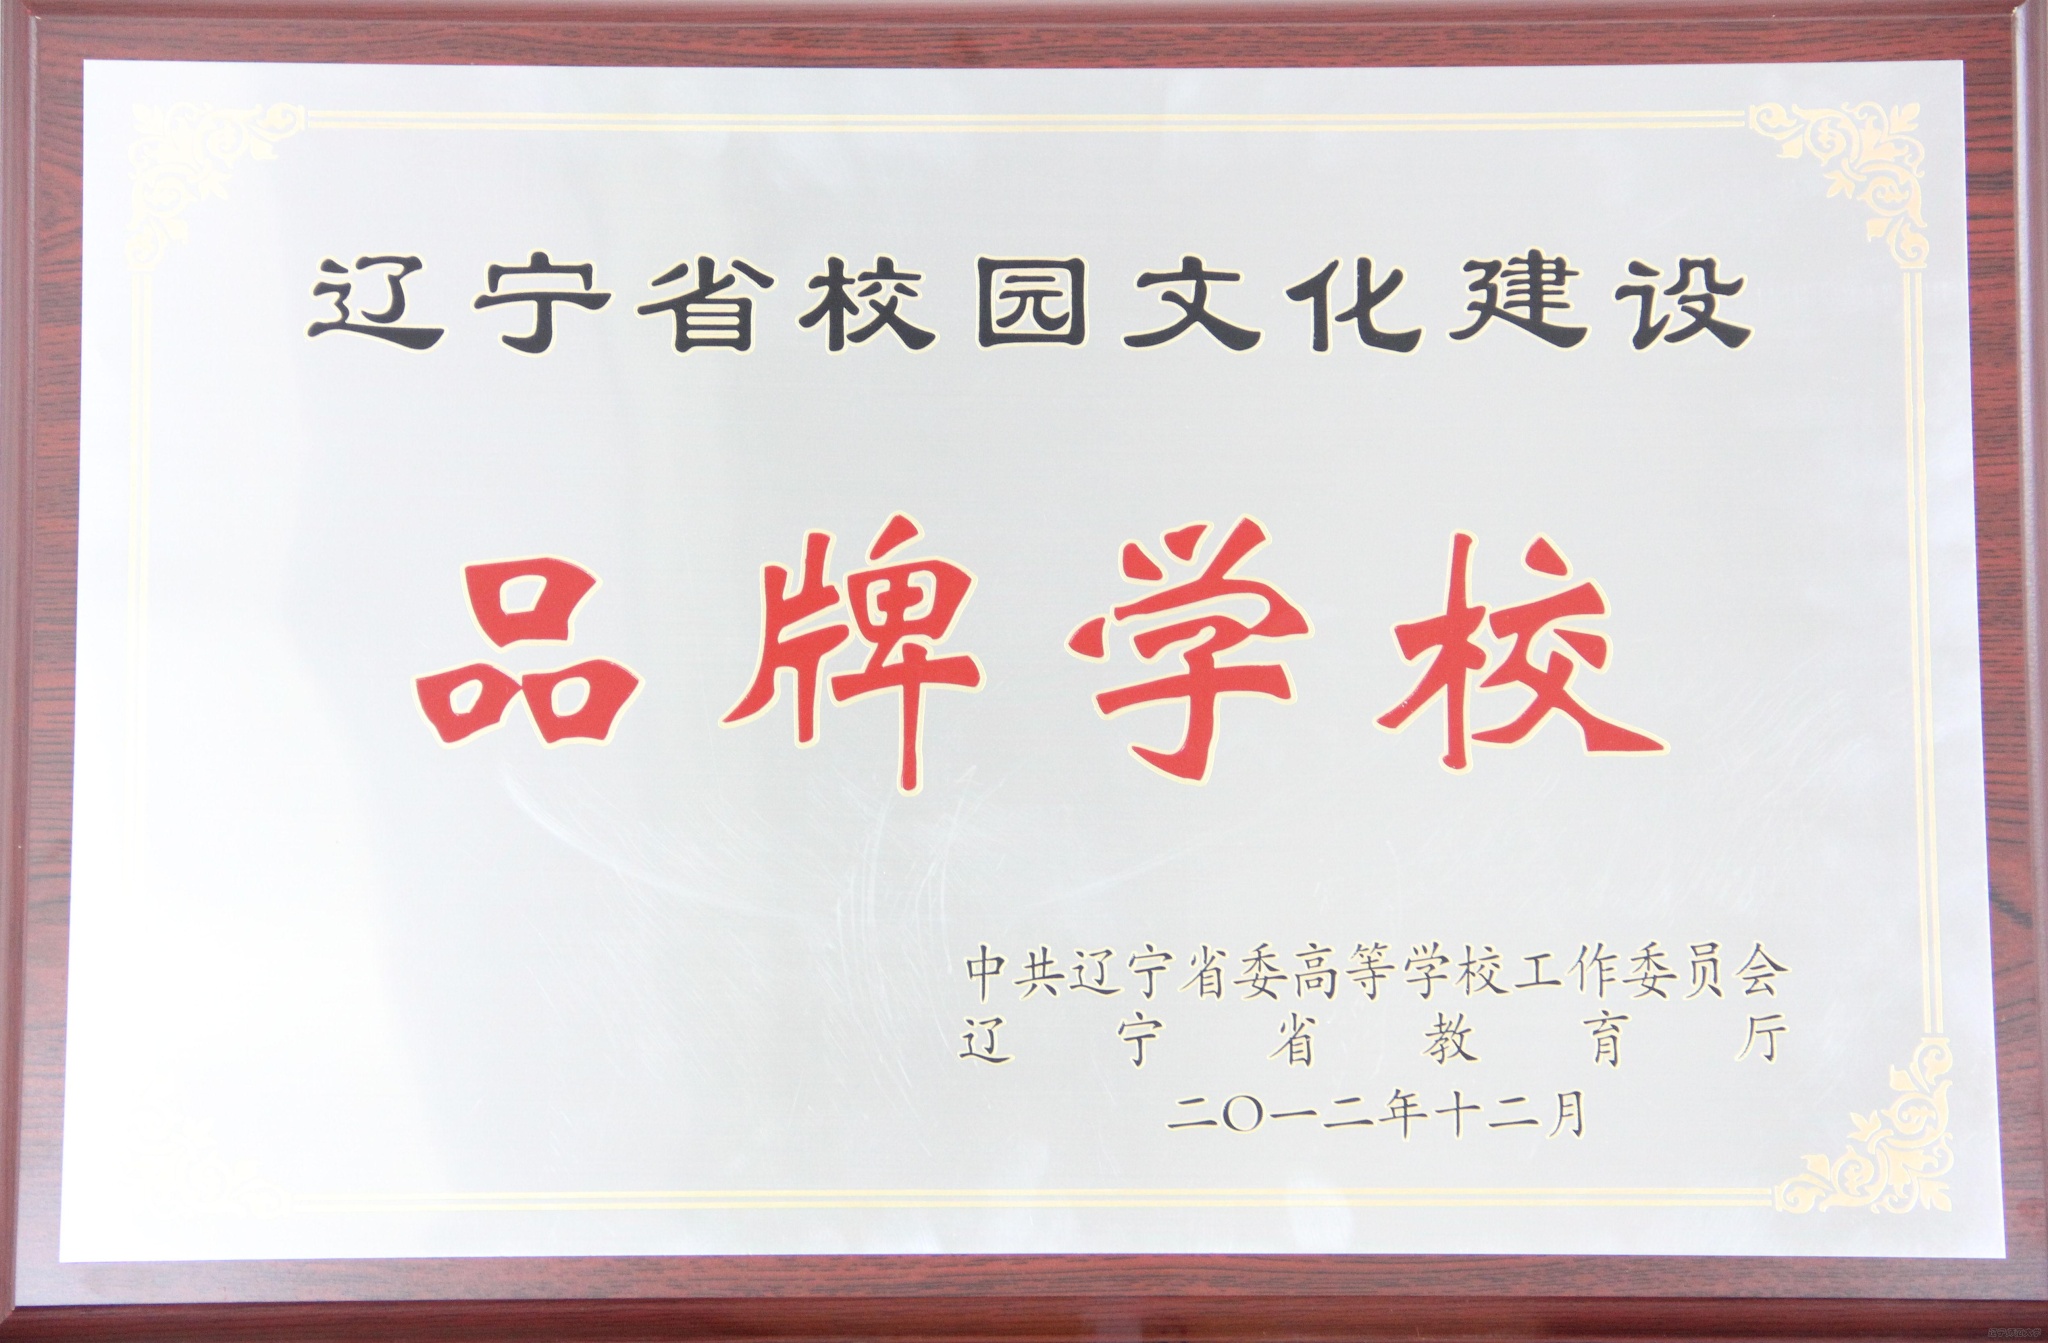 辽宁省校园文化建设
品牌学校
中共辽宁省委高等学校工作委员会
辽宁省教育厅
二〇一二年十二月